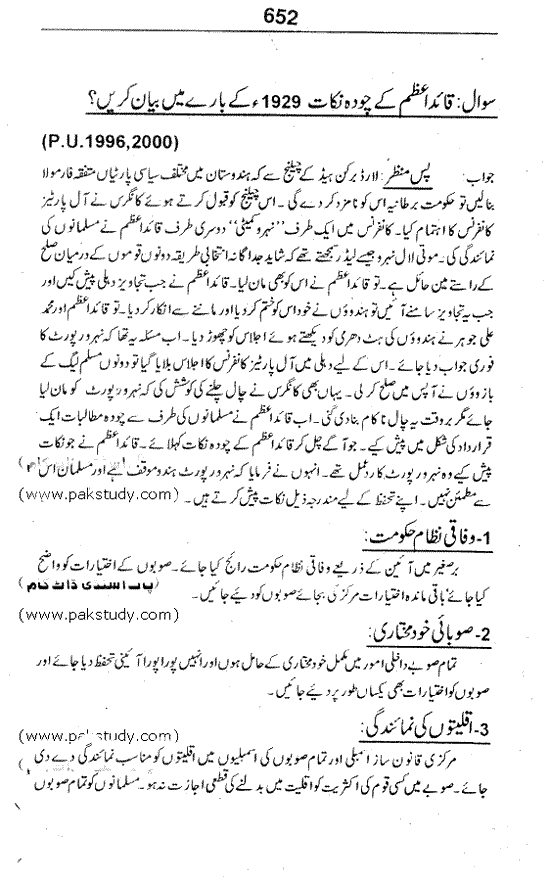 652
سوال: قائداعظم کے چودہ نکات 1929ء کے بارے میں بیان کریں؟
(P.U.1996,2000)
جواب: پس منظر: لارڈ برکن ہیڈ کے چیلنج سے کہ ہندوستان میں مختلف سیاسی پارٹیاں متفقہ فارمولا
بنالیں تو حکومت برطانیہ اس کو نامزد کر دے گی۔ اس چیلنج کو قبول کرتے ہوئے کانگرس نے آل پارٹیز
کانفرنس کا اہتمام کیا۔ کانفرنس میں ایک طرف ”نہرو کمیٹی“ دوسری طرف قائداعظم نے مسلمانوں کی
نمائندگی کی۔ موتی لال نہرو جیسے لیڈر سمجھتے تھے کہ شاید جداگانہ انتخابی طریقہ دونوں قوموں کے درمیان صلح
کے راستے میں حائل ہے۔ تو قائداعظم نے اس کو بھی مان لیا۔ قائداعظم نے جب تجاویز دہلی پیش کیں اور
جب یہ تجاویز سامنے آئیں تو ہندوؤں نے خود اس کو ختم کر دیا اور ماننے سے انکار کر دیا۔ تو قائداعظم اور محمد
علی جوہر نے ہندوؤں کی ہٹ دھری کو دیکھتے ہوئے اجلاس کو چھوڑ دیا۔ اب مسئلہ یہ تھا کہ نہرو رپورٹ کا
فوری جواب دیا جائے۔ اس کے لیے دہلی میں آل پارٹیز کانفرنس کا اجلاس بلایا گیا تو دونوں مسلم لیگ کے
بازوؤں نے آپس میں صلح کر لی۔ یہاں بھی کانگرس نے چال چلنے کی کوشش کی کہ نہرو رپورٹ کو مان لیا
جائے مگر بروقت یہ چال ناکام بنا دی گئی۔ اب قائداعظم نے مسلمانوں کی طرف سے چودہ مطالبات ایک
قرارداد کی شکل میں پیش کیے۔ جو آگے چل کر قائداعظم کے چودہ نکات کہلائے۔ قائداعظم نے جو نکات
پیش کیے وہ نہرو رپورٹ کا ردعمل تھے۔ انہوں نے فرمایا کہ نہرو رپورٹ ہندو موقف ہے اور مسلمان اس
سے مطمئن نہیں۔ اپنے تحفظ کے لیے مندرجہ ذیل نکات پیش کرتے ہیں۔ (www.pakstudy.com)
1- وفاقی نظام حکومت:
برصغیر میں آئین کے ذریعے وفاقی نظام حکومت رائج کیا جائے۔ صوبوں کے اختیارات کو واضح
کیا جائے باقی ماندہ اختیارات مرکز کی بجائے صوبوں کو دیئے جائیں۔ (پاک اسٹڈی ڈاٹ کام)
(www.pakstudy.com)
2- صوبائی خود مختاری:
تمام صوبے داخلی امور میں مکمل خود مختاری کے حامل ہوں اور انہیں پورا پورا آئینی تحفظ دیا جائے اور
صوبوں کو اختیارات بھی یکساں طور پر دیئے جائیں۔
3- اقلیتوں کی نمائندگی:
(www.pakstudy.com)
مرکزی قانون ساز اسمبلی اور تمام صوبوں کی اسمبلیوں میں اقلیتوں کو مناسب نمائندگی دے دی
جائے۔ صوبے میں کسی قوم کی اکثریت کو اقلیت میں بدلنے کی قطعی اجازت نہ ہو۔ مسلمانوں کو تمام صوبوں